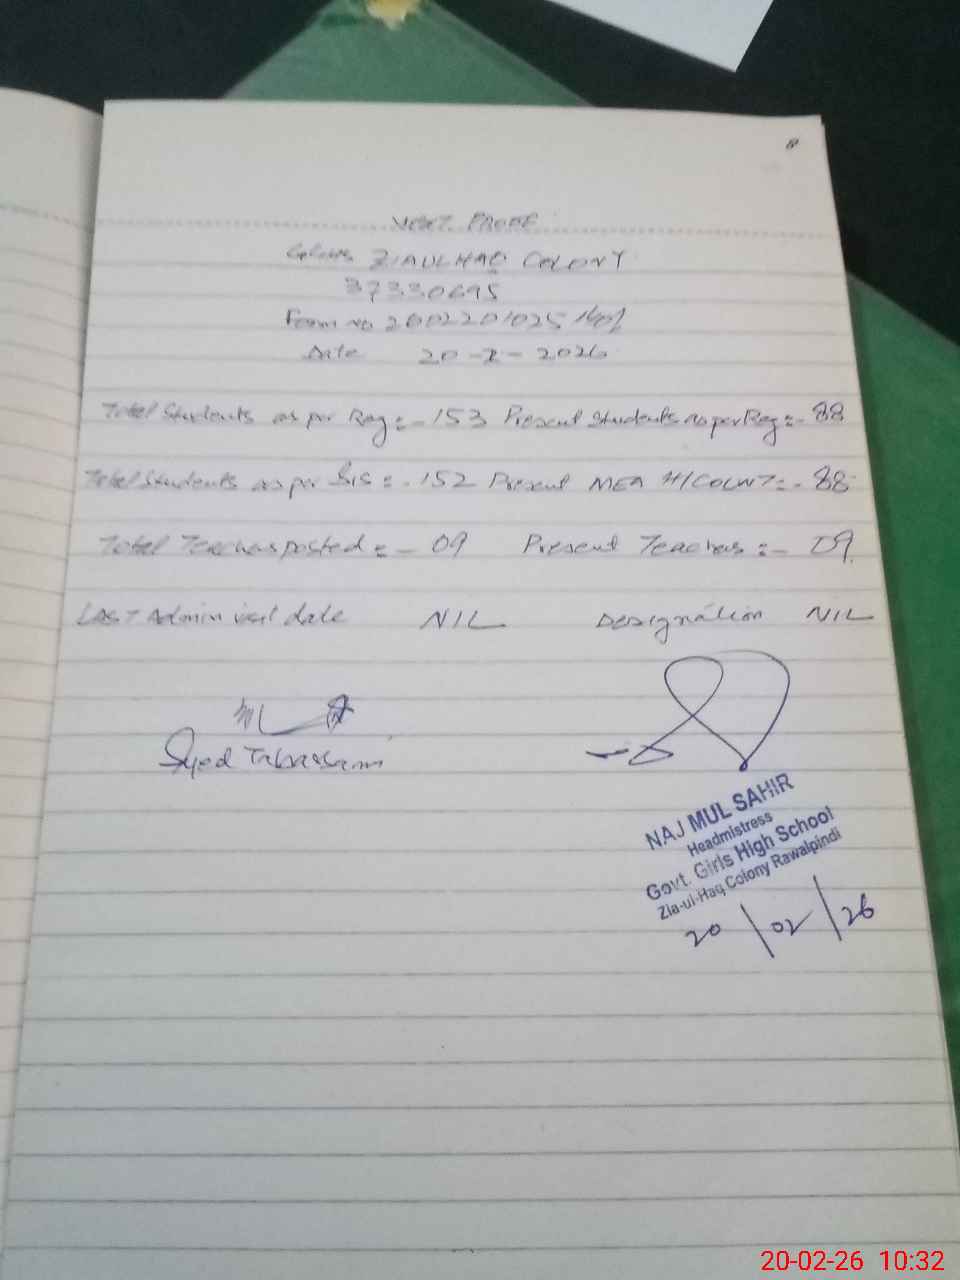 VISIT PROOF
ZIAULHAQ COLONY
37330695
Form no 2602201025
Date 20-2-2026
Total Students as per Reg:- 153 Present Students as per Reg:- 88
Total Students as per SIS:- 152 Present MEA H/COUNT:- 88
Total Teachers posted:- 09 Present Teachers:- 09
LAST Admin visit date NIL Designation NIL
Syed Tabassam
NAJ MUL SAHIR
Headmistress
Govt. Girls High School
Zia-ul-Haq Colony Rawalpindi
20/02/26
20-02-26 10:32